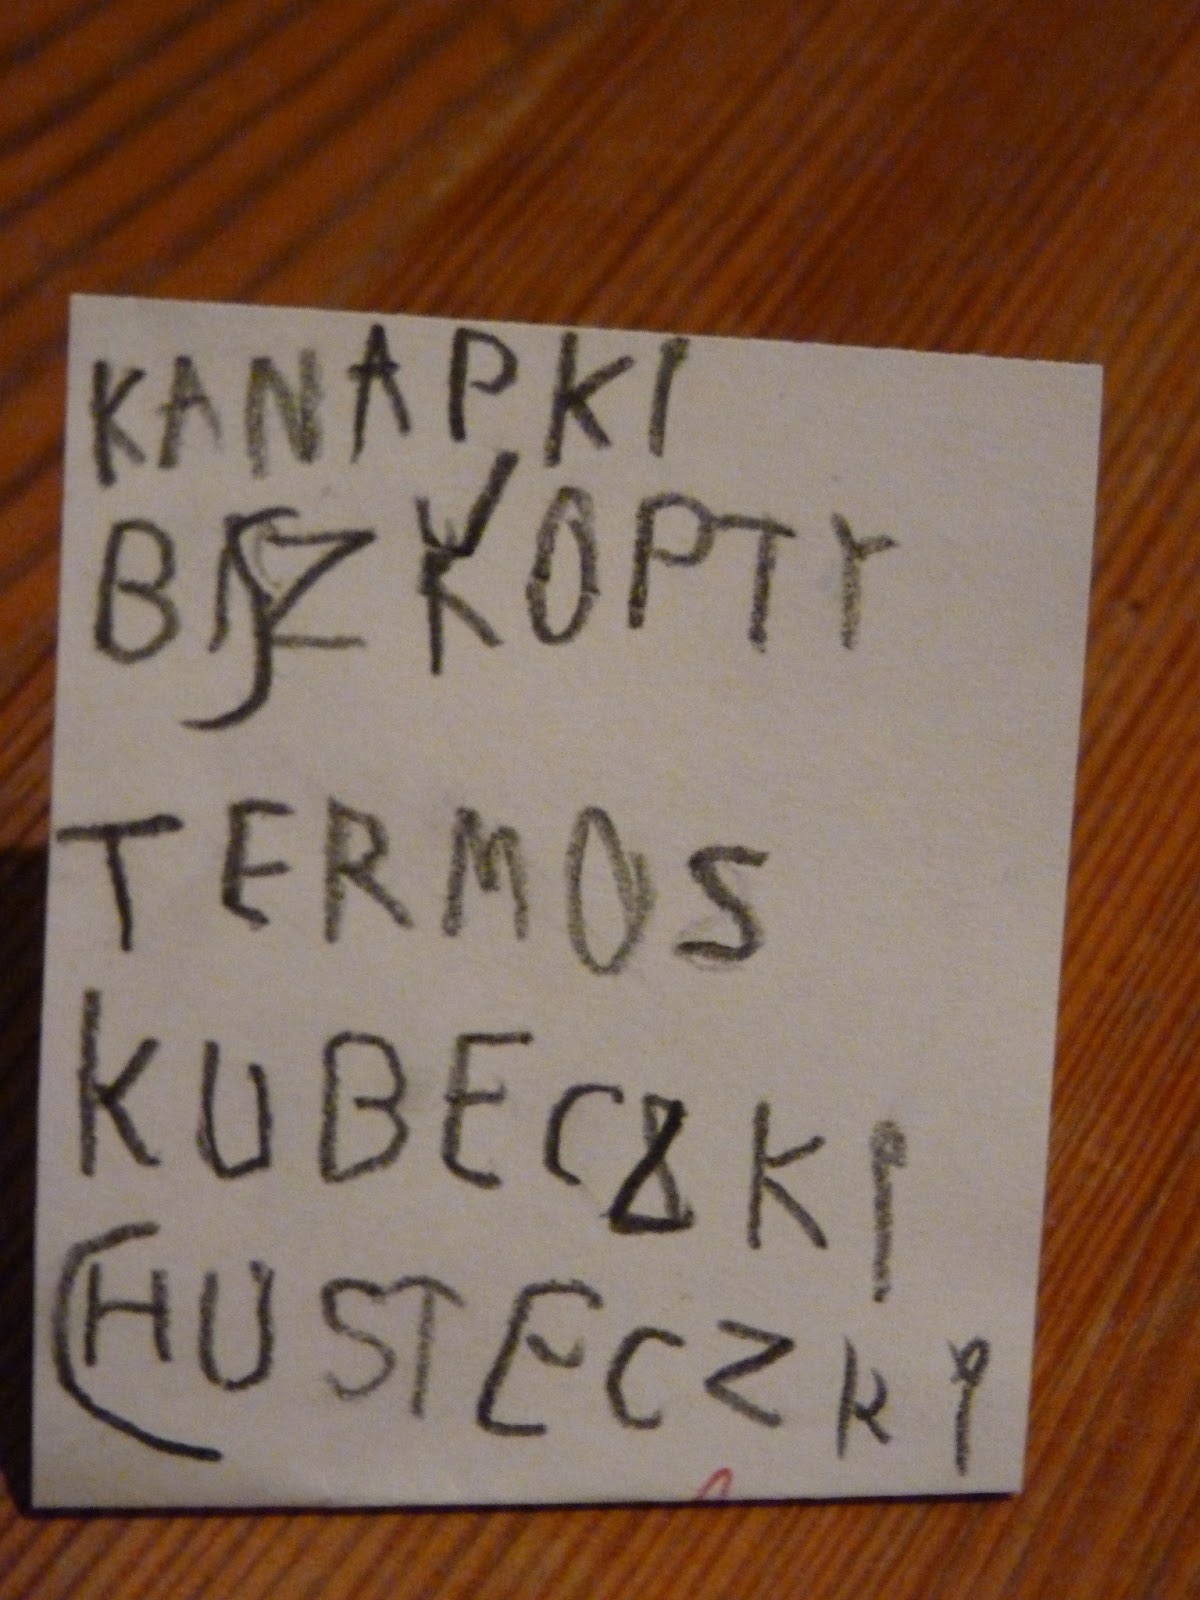 KANAPKI
BISZKOPTY
TERMOS
KUBECZKI
CHUSTECZKi